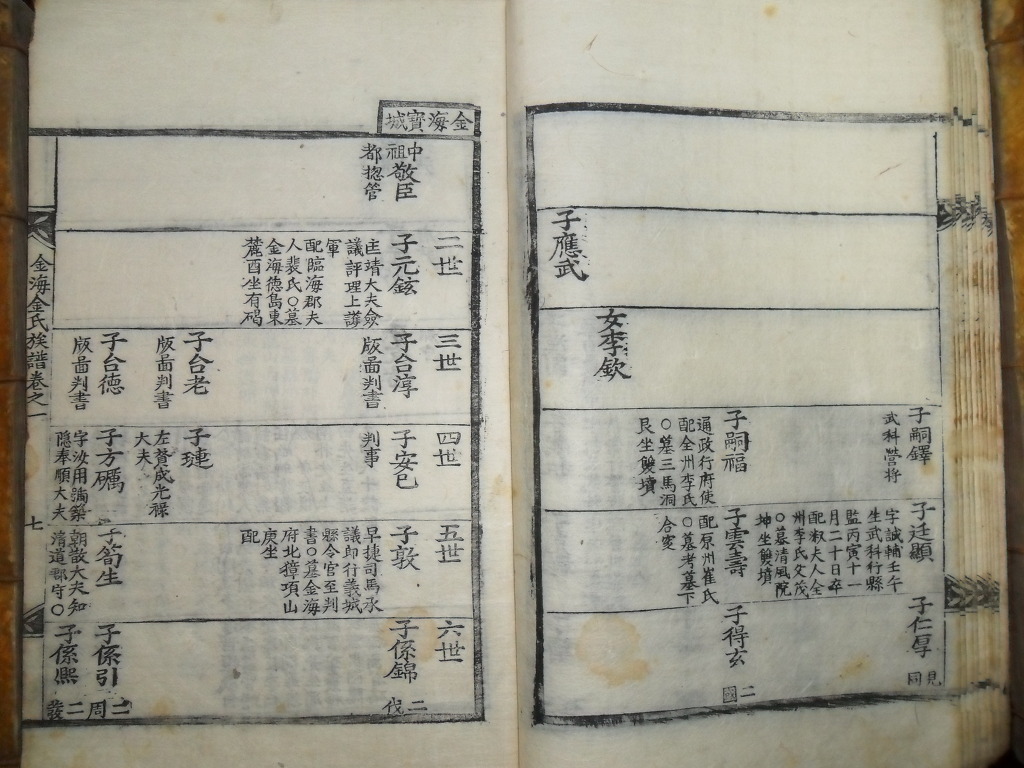 子嗣鐸
武科營将
子廷顯
字誠輔壬午
生武科行縣
監丙寅十一
月二十日卒
配淑夫人全
州李氏父茂
○墓清風院
坤坐雙墳
子仁厚
見
同
子嗣福
通政行府使
配全州李氏
○墓三馬洞
艮坐雙墳
子雲壽
配原州崔氏
○墓考墓下
合窆
子得玄
二
國
女李欽
子應武
金海寳城
中
祖敬臣
都揔管
二世
子元鉉
匡靖大夫僉
議評理上護
軍
配臨海郡夫
人裴氏○墓
金海德島東
麓酉坐有碣
三世
子台淳
版啚判書
子台老
版啚判書
子台德
版啚判書
四世
子安已
判事
子璉
左賛成光禄
大夫
子方礪
字汝用號築
隠奉順大夫
五世
子敦
早捷司馬承
議郎行義城
縣令官至判
書○墓金海
府北獐項山
庚坐
配
子筍生
朝散大夫知
清道郡守○
六世
子係錦
二
伐
子係引
二周
子係熙
二發
金海金氏族譜卷之一
七